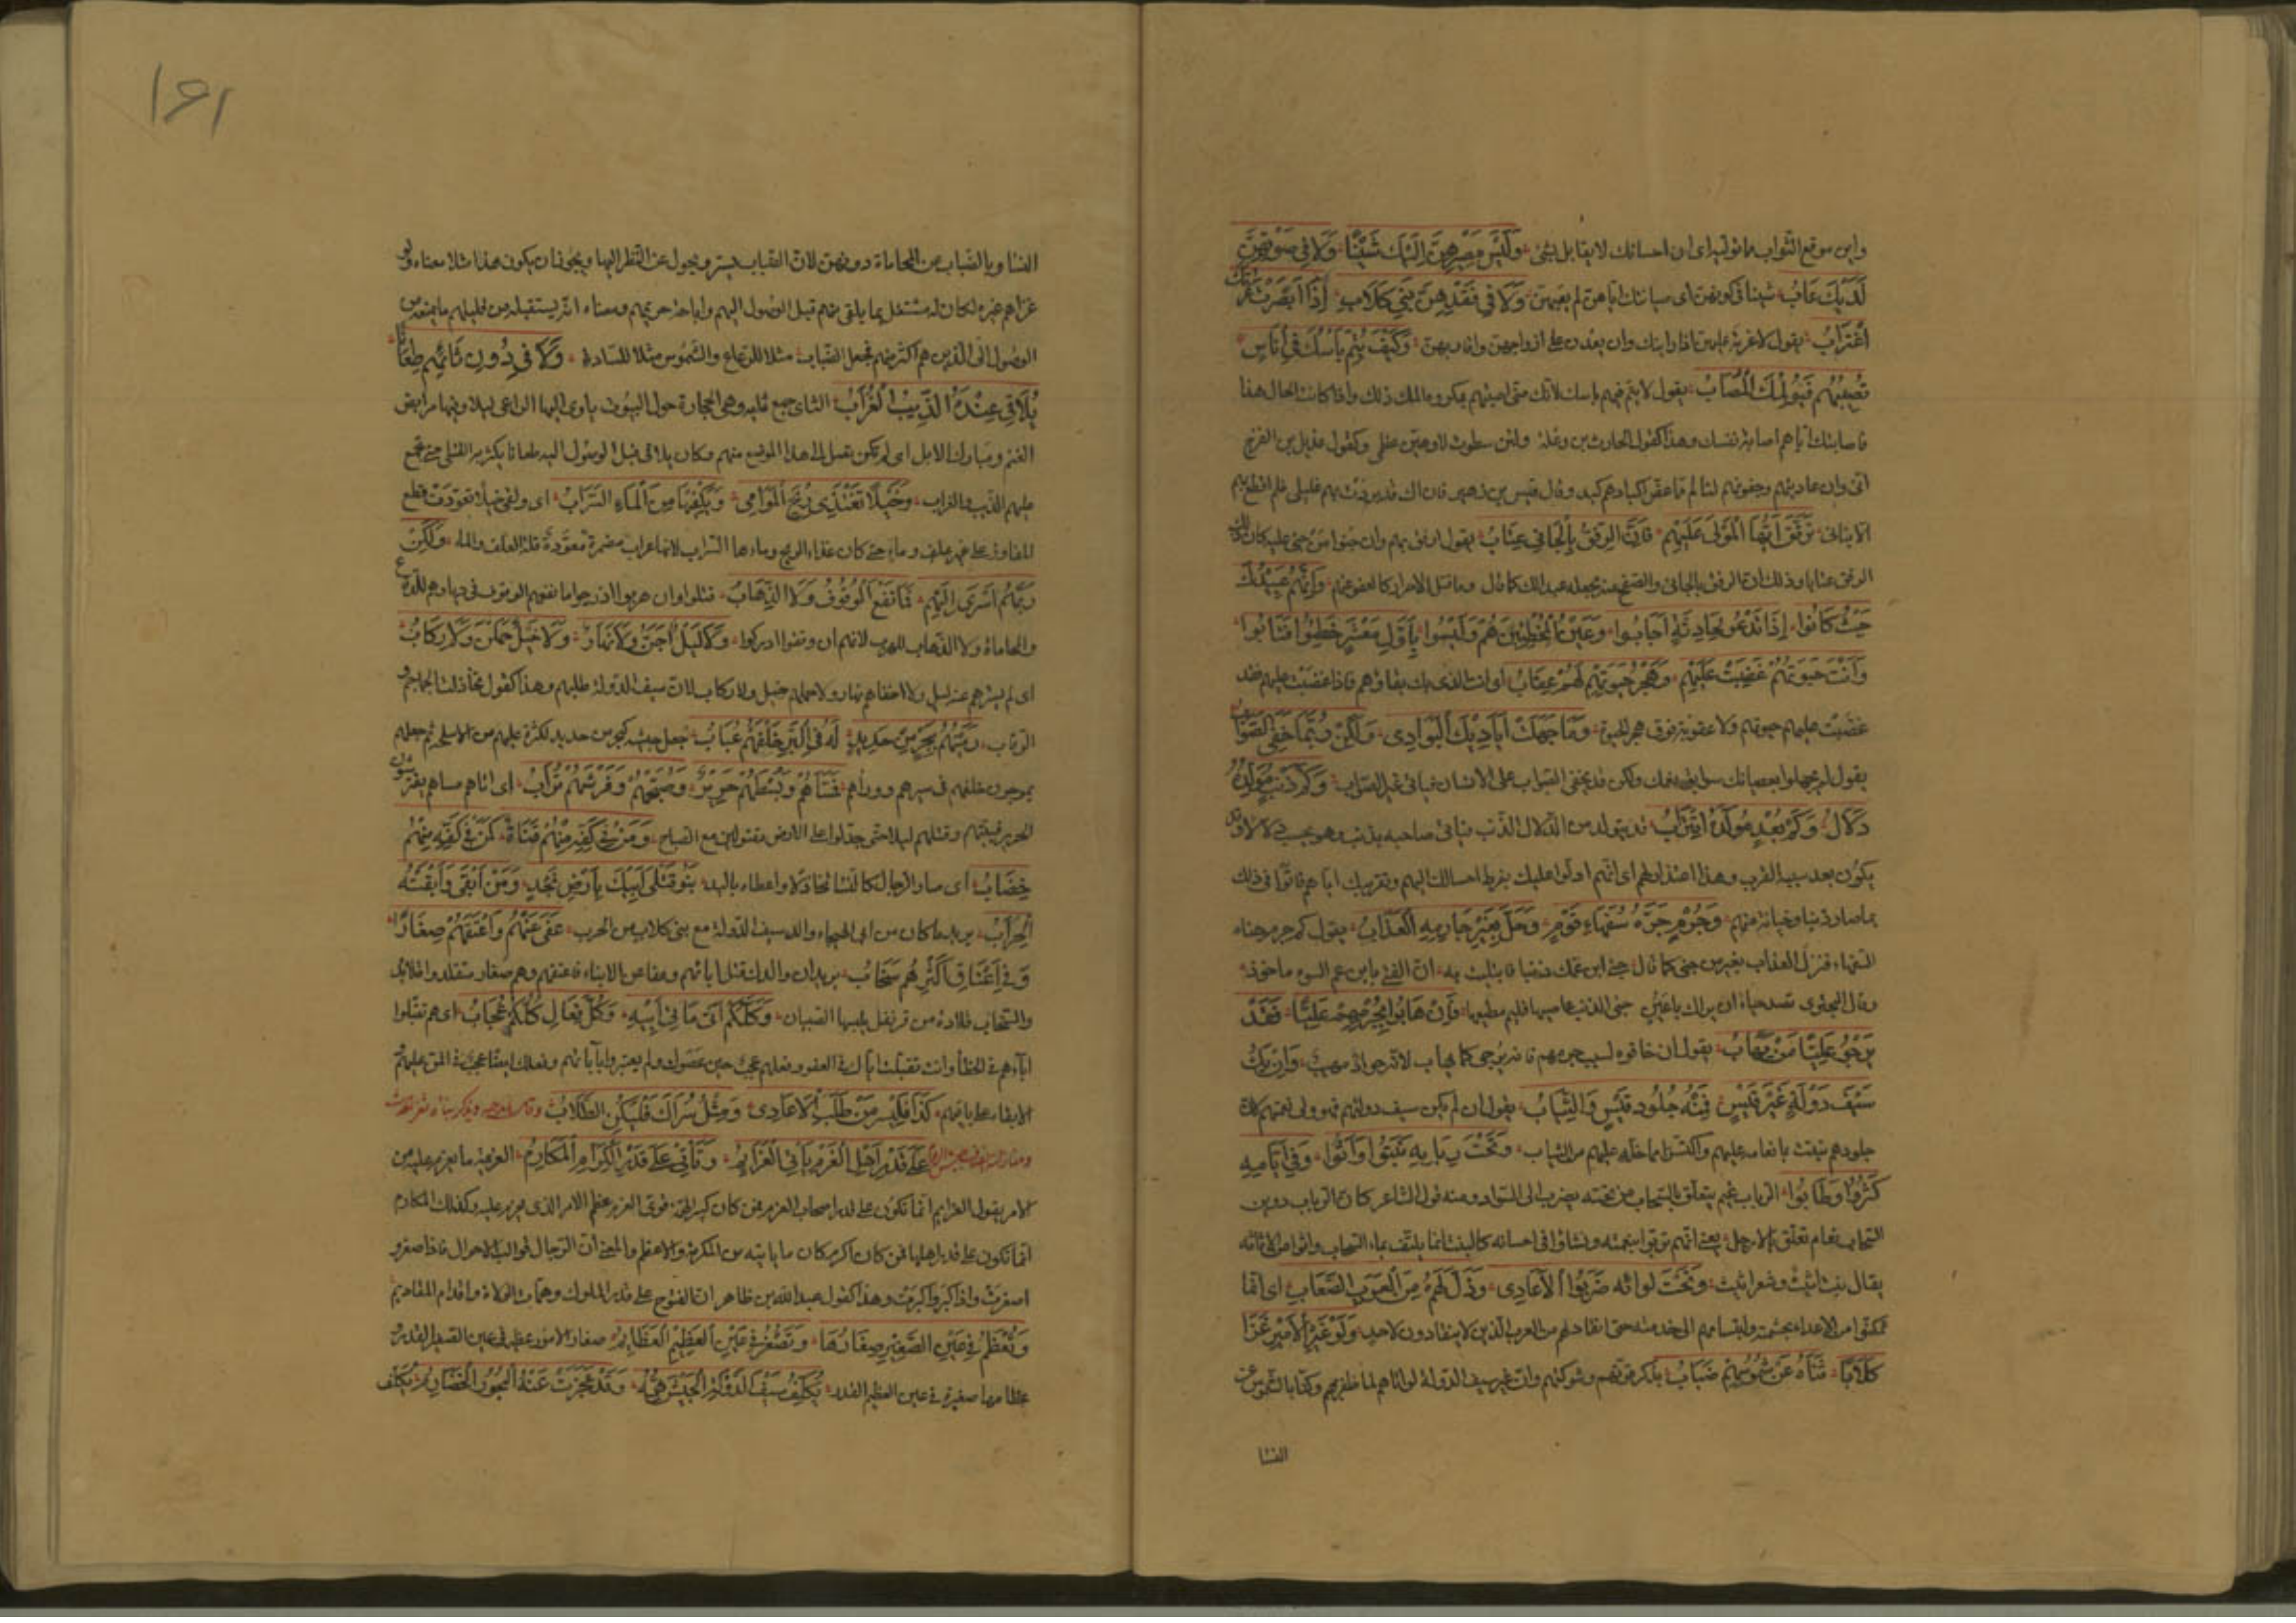 واين موقع الثواب ما توليه اى ان احسانك لا يقابل بشئ وَلَيْسَ مَصِيرُهُنَّ اِلَيْكَ شَيْنًا وَلَا فِى صَوْنِهِنَّ
لَدَيْكَ عَابُ شينا فى كونهن اى صيانتك اياهن لم يعبهن وَلَا فِى فَقْدِهِنَّ بَنِى كِلَابٍ اِذَا اَبْصَرْنَ غُرَّتَكَ
اغْتِرَابُ يقول لا غربة عليهن اذا راينك وان بعدن على ازواجهن واقاربهن وَكَيْفَ يَتِمُّ بَأْسُكَ فِى اُنَاسٍ
تُصِيبُهُمْ فَيُؤْلِمُكَ الْمُصَابُ يقول لا يتم فيهم باسك لانك متى اصبتهم بمكروه المك ذلك واذا كانت الحال هذا
فاصابتك اياهم اصابة نفسك وهذا كقول الحارث بن وعلة ولئن سطوت لاوهنن عظمى وكقول عديل بن الفرخ
انى وان عاديتهم وجفوتهم لتالم مما عض اكبادهم كبدى وقال قيس بن زهير فان اك قد بردت بهم غليلى فلم اقطع بهم
الا بنانى تَرَفَّقْ اَيُّهَا الْمَوْلَى عَلَيْهِمْ فَاِنَّ الرِّفْقَ بِالْجَانِى عِتَابُ يقول ارفق بهم وان جنوا من جنى عليك كان
الرفق عتابا وذلك ان الرفق بالجانى والصفح عنه يجعله عبدا لك كما قال وما قتل الاحرار كالعفو عنهم وَاِنَّهُمُ عَبِيدُكَ
حَيْثُ كَانُوا اِذَا تَدْعُو لِحَادِثَةٍ اَجَابُوا وَعَيْنُ الْمُخْطِئِينَ هُمْ وَلَيْسُوا بِاَوَّلِ مَعْشَرٍ خَطِئُوا فَتَابُوا
وَاَنْتَ حَيَوتُهُمْ غَضِبَتْ عَلَيْهِمْ وَهَجْرُ حَيَوتِهِمْ لَهُمْ عِقَابُ اى انت الذى بك بقاؤهم فاذا غضبت عليهم فقد
غضبت عليهم حيوتهم ولا عقوبة فوق هجر الحيوة وَمَا جَهِلَتْ اَيَادِيَكَ الْبَوَادِى وَلٰكِنْ رُبَّمَا خَفِىَ الصَّوَابُ
يقول لم يجهلوا بعصيانك سوابق نعمك ولكن قد يخفى الصواب على الانسان فياتى غير الصواب وَكَمْ ذَنْبٍ مُوَلِّدُهُ
دَلَالُ وَكَمْ بُعْدٍ مُوَلِّدُهُ اقْتِرَابُ قد يتولد من الدلال الذنب فياتى صاحبه بذنب وهو يحسبه دلالا وقد
يكون بعد سببه القرب وهذا اعتذار لهم اى انهم ادلوا عليك بفرط احسانك اليهم وتقريبك اياهم فاتوا فى ذلك
بما صار ذنبا وخيانة منهم وَجُرْمٍ جَرَّهُ سُفَهَاءُ قَوْمٍ وَحَلَّ بِغَيْرِ جَارِمِهِ الْعَذَابُ يقول كم جرم جناه
السفهاء فنزل العذاب بغير من جنى كما قال جنى ابن عمك ذنبا فابتليت به ان الفتى بابن عم السوء ماخوذ
وقال البحترى تصد حياء ان يراك باعين جنى الذنب عاصيها فليم مطيعها فَاِنْ هَابُوا بِجُرْمِهِمُ عَلِيًّا فَقَدْ
يَرْجُو عَلِيًّا مَنْ يَهَابُ يقول ان خافوه لسبب جرمهم فانه يرجى كما يهاب لانه جواد مهيب وَاِنْ يَكُ
سَيْفَ دَوْلَةِ غَيْرِ قَيْسٍ فَمِنْهُ جُلُودُ قَيْسٍ وَالثِّيَابُ يقول ان لم يكن سيف دولتهم فهو ولى نعمتهم لان
جلودهم نبتت بانعامه عليهم واكتسوا مما خلعه عليهم من الثياب وَتَحْتَ رَبَابِهِ نَبَتُوا وَاَثُّوا وَفِى اَيَّامِهِ
كَثُرُوا وَطَابُوا الرباب غيم يتعلق بالسحاب من تحته يضرب الى السواد ومنه قول الشاعر كان الرباب دوين
السحاب نعام تعلق بالارجل يعنى انهم تربوا بنعمته ونشاوا فى احسانه كالنبت انما يلتف بماء السحاب واثوا من الاثاثة
يقال نبت اثيث وشعر اثيث وَتَحْتَ لِوَائِهِ ضَرَبُوا الْاَعَادِى وَذَلَّ لَهُمْ مِنَ الْعَرَبِ الصِّعَابُ اى انما
تمكنوا من الاعداء بخدمته وانتسابهم الى خدمته حتى انقاد لهم من العرب الذين لا ينقادون لاحد وَلَوْ غَيْرُ الْاَمِيرِ غَزَا
كِلَابًا ثَنَاهُ عَنْ شُمُوسِهِمُ ضَبَابُ يذكر قوتهم وشوكتهم وان غير سيف الدولة لو اتاهم لما ظفر بهم وكنى بالشموس عن
النسا
۱۶۱
النسا وبالضباب عن المحاماة دونهن لان الضباب يستر ويحول عن النظر اليها ويجوز ان يكون هذا مثلا معناه ولو
غزاهم غيره لكان له مشتغل بما يلقى منهم قبل الوصول اليهم واباحة حريمهم ومعناه انه يستقبله من قليلهم ما يمنعه من
الوصول الى الذين هم اكثر منهم فجعل الضباب مثلا للرعاع والشموس مثلا للسادة وَلَاقَى دُونَ ثَائِهِمُ طِعَانًا
يُلَاقِى عِنْدَهُ الذِّيبَ الْغُرَابُ الثاى جمع ثاية وهى الحجارة حول البيوت ياوى اليها الراعى ليلا وفيها مرابض
الغنم ومبارك الابل اى لم يكن يصل الى هذا الموضع منهم وكان يلاقى قبل الوصول اليه طعانا يكثر به القتلى حتى يجمع
عليهم الذيب والغراب وَخَيْلًا تَغْتَذِى رِيحَ الْمَوَامِى وَيَكْفِيهَا مِنَ الْمَاءِ السَّرَابُ اى ولقى خيلا تعودت قطع
المفاوز على غير علف وماء حتى كان غذاءها الريح وماءها السراب لانها عراب مضمرة معودة قلة العلف والماء وَلٰكِنْ
رَبُّهُمْ اَسْرَى اِلَيْهِمْ فَمَا نَفَعَ الْوُقُوفُ وَلَا الذَّهَابُ
والمحاماة ولا الذهاب للهرب لانهم ان وقفوا ادركوا وَلَا لَيْلٌ اَجَنَّ وَلَا نَهَارٌ وَلَا خَيْلٌ حَمَلْنَ وَلَا رِكَابُ
اى لم يسترهم عنه ليل ولا اخفاهم نهار ولا حملهم خيل ولا ركاب لان سيف الدولة طلبهم وهذا كقول
الرقاب رَمَيْتَهُمُ بِبَحْرٍ مِنْ حَدِيدٍ لَهُ فِى الْبَرِّ خَلْفَهُمُ عُبَابُ جعل جيشه كبحر من حديد لكثرة ما عليهم من الاسلحة ثم جعلهم
يموجون خلفهم فى سيرهم وراءهم فَمَسَّاهُمْ وَبُسْطُهُمُ حَرِيرٌ وَصَبَّحَهُمْ وَفُرْشُهُمُ تُرَابُ اى اتاهم مساء وهم يفترشون
الحرير فبيتهم وقتلهم ليلا حتى جدلوا على الارض مقتولين مع الصباح وَمَنْ فِى كَفِّهِ مِنْهُمْ قَنَاةٌ كَمَنْ فِى كَفِّهِ مِنْهُمْ
خِضَابُ اى صار الرجال كالنساء تخاذلا واعطاء باليد بَنُو قَتْلَى اَبِيكَ بِاَرْضِ نَجْدٍ وَمَنْ اَبْقَى وَاَبْقَتْهُ
الْحِرَابُ يريد ما كان من ابى الهيجاء والد سيف الدولة مع بنى كلاب من الحرب عَفَى عَنْهُمْ وَاَعْتَقَهُمْ صِغَارًا
وَفِى اَعْنَاقِ اَكْثَرِهِمُ سِخَابُ يريد ان والدك قتل اباءهم وعفا عن الابناء فاعتقهم وهم صغار متقلدو قلائد
والسخاب قلادة من قرنفل يلبسها الصبيان وَكُلُّكُمُ اَتَى مَاتَى اَبِيهِ وَكُلُّ فَعَالِ كُلِّكُمُ عُجَابُ اى هم تقبلوا
اباءهم فى الخطأ وانت تقبلت اباك فى العفو وفعلهم عجب حين عصوك ولم يعتبروا بآبائهم وفعلك ايضا عجب فى المن عليهم
الابقاء على باقيهم كَذَا فَلْيَسْرِ مَنْ طَلَبَ الْاَعَادِى وَمِثْلَ سُرَاكَ فَلْيَكُنِ الطِّلَابُ
عَلَى قَدْرِ اَهْلِ الْعَزْمِ تَأْتِى الْعَزَائِمُ وَتَأْتِى عَلَى قَدْرِ الْكِرَامِ الْمَكَارِمُ العزيمة ما يعزم عليه من
الامر يقول العزايم انما تكون على قدر اصحاب العزم فمن كان كبير الهمة قوى العزم عظم الامر الذى يعزم عليه وكذلك المكارم
انما تكون على قدر اهلها فمن كان اكرم كان ما ياتيه من المكرمة والاعظم والمعنى ان الرجال قوالب الاحوال فاذا صغروا
اصغرت واذا كبروا كبرت وهذا كقول عبد الله بن طاهر ان الفتوح على قدر الملوك وهمات الولاة واقدام المقاديم
وَتَعْظُمُ فِى عَيْنِ الصَّغِيرِ صِغَارُهَا وَتَصْغُرُ فِى عَيْنِ الْعَظِيمِ الْعَظَائِمُ صغار الامور عظيمة فى عين الصغير القدر و
عظامها صغيرة فى عين العظيم القدر يُكَلِّفُ سَيْفُ الدَّوْلَةِ الْجَيْشَ هَمَّهُ وَقَدْ عَجَزَتْ عَنْهُ الْجُيُوشُ الْخَضَارِمُ يكلف